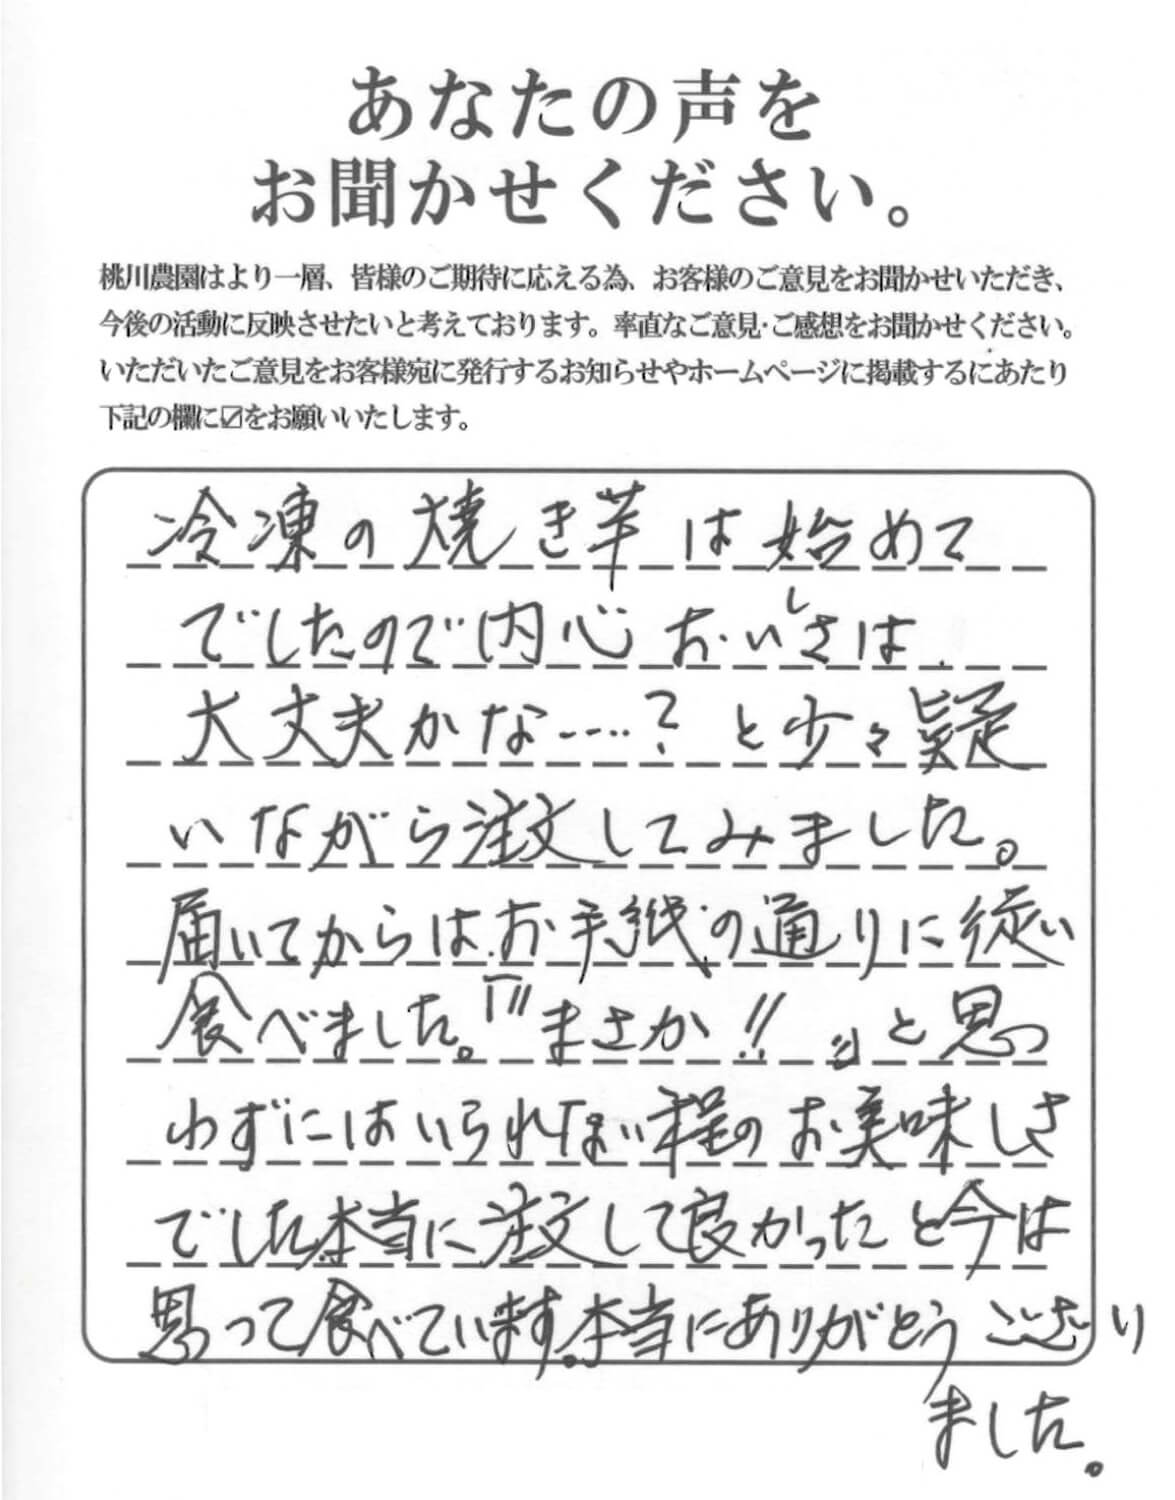 あなたの声を
お聞かせください。
桃川農園はより一層、皆様のご期待に応える為、お客様のご意見をお聞かせいただき、
今後の活動に反映させたいと考えております。率直なご意見・ご感想をお聞かせください。
いただいたご意見をお客様宛に発行するお知らせやホームページに掲載するにあたり
下記の欄に☑をお願いいたします。
冷凍の焼き芋は始めて
でしたので内心おいしさは
大丈夫かな……?と少々疑
いながら注文してみました。
届いてからはお手紙の通りに従い
食べました。『まさか!!』と思っ
わずにはいられない程のお美味しさ
でした本当に注文して良かったと今は
思って食べています。本当にありがとうございり
ました。